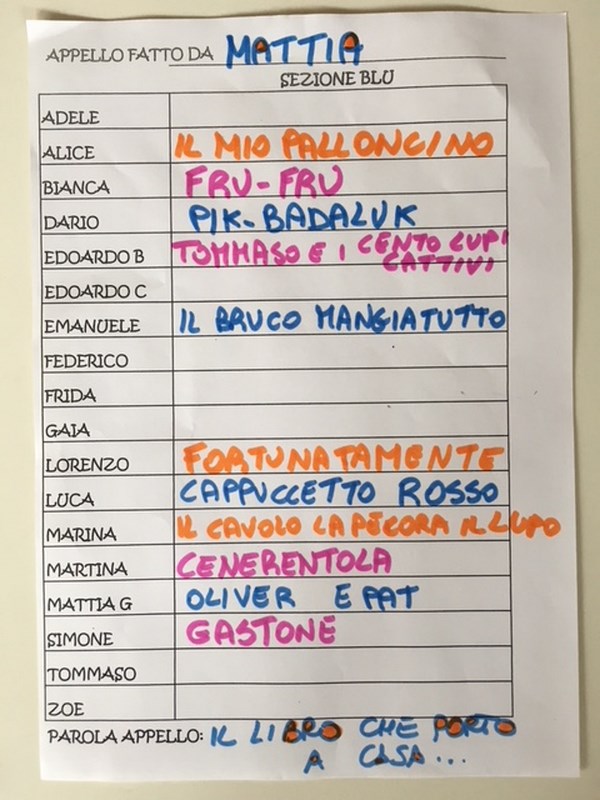 APPELLO FATTO DA MATTIA
SEZIONE BLU
ADELE
ALICE IL MIO PALLONCINO
BIANCA FRU-FRU
DARIO PIK-BADALUK
EDOARDO B TOMMASO E I CENTO LUPI
CATTIVI
EDOARDO C
EMANUELE IL BRUCO MANGIATUTTO
FEDERICO
FRIDA
GAIA
LORENZO FORTUNATAMENTE
LUCA CAPPUCCETTO ROSSO
MARINA IL CAVOLO LA PECORA IL LUPO
MARTINA CENERENTOLA
MATTIA G OLIVER E PAT
SIMONE GASTONE
TOMMASO
ZOE
PAROLA APPELLO: IL LIBRO CHE PORTO
A CASA...